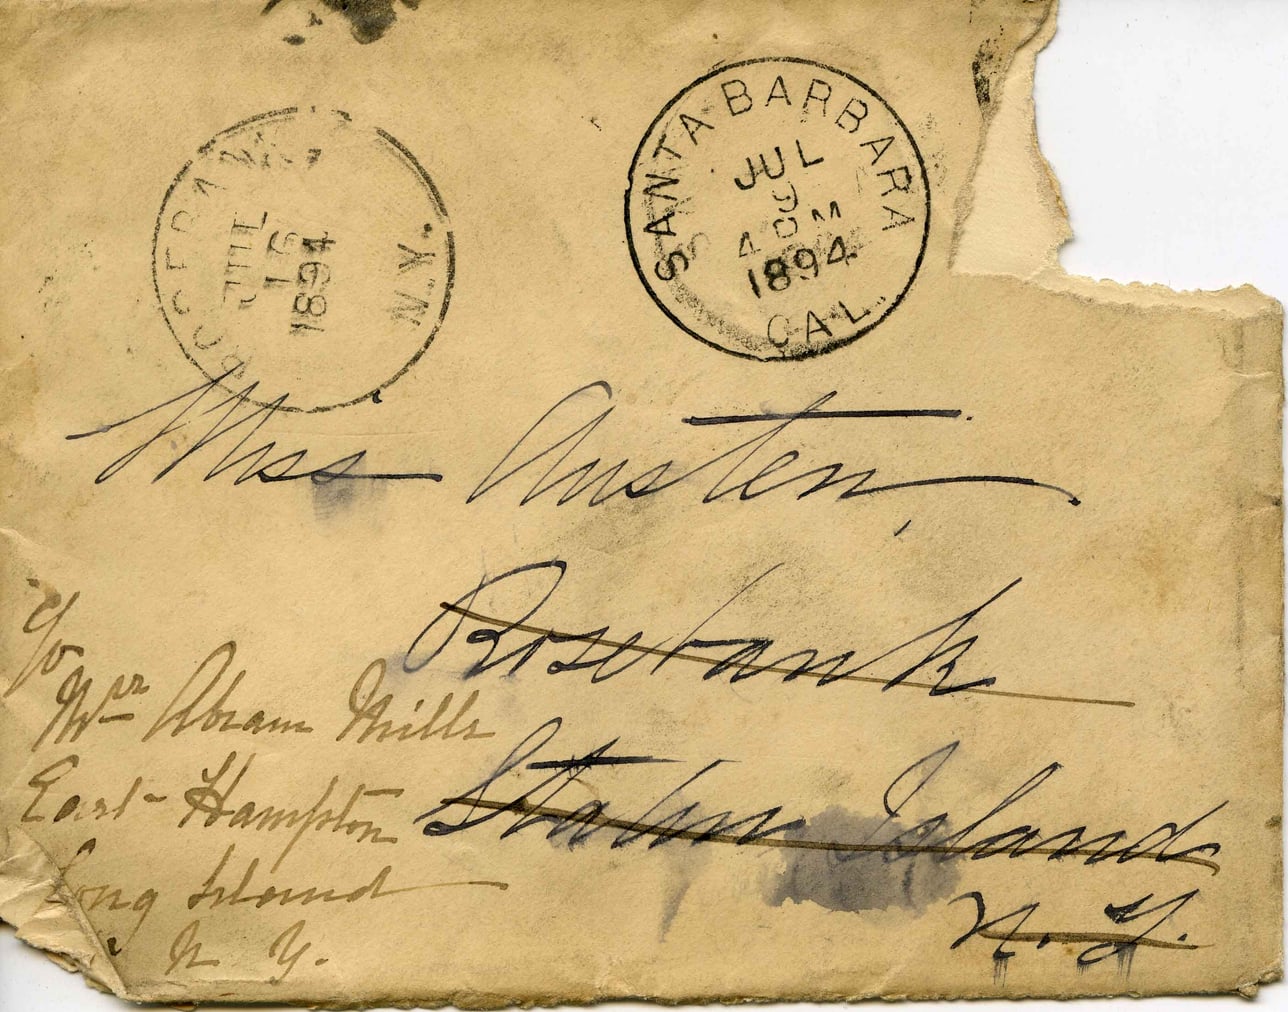 ROSEBANK
N.Y.
JUL
16
1894
SANTA BARBARA
JUL
9
4 0 M
1894
CAL.
Miss Austen,
Rosebank
Staten Island
N. Y.
c/o
Mrs Abram Mills
East Hampton
Long Island
N Y.